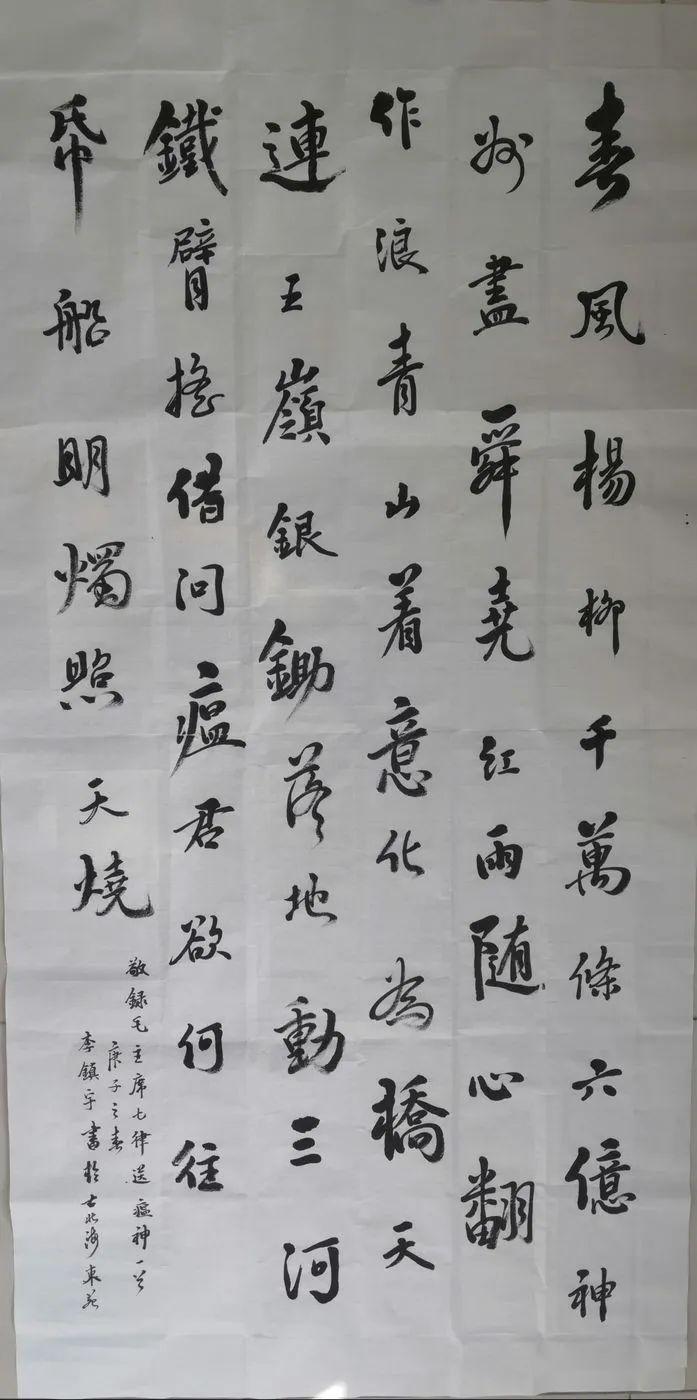 春風楊柳千萬條六億神
州盡舜堯紅雨随心翻
作浪青山着意化為橋天
連五嶺銀鋤落地動三河
鐵臂搖借问瘟君欲何往
帋船明燭照天燒
敬録毛主席七律送瘟神一首
庚子之春
李鎮宇書於古北海東苑